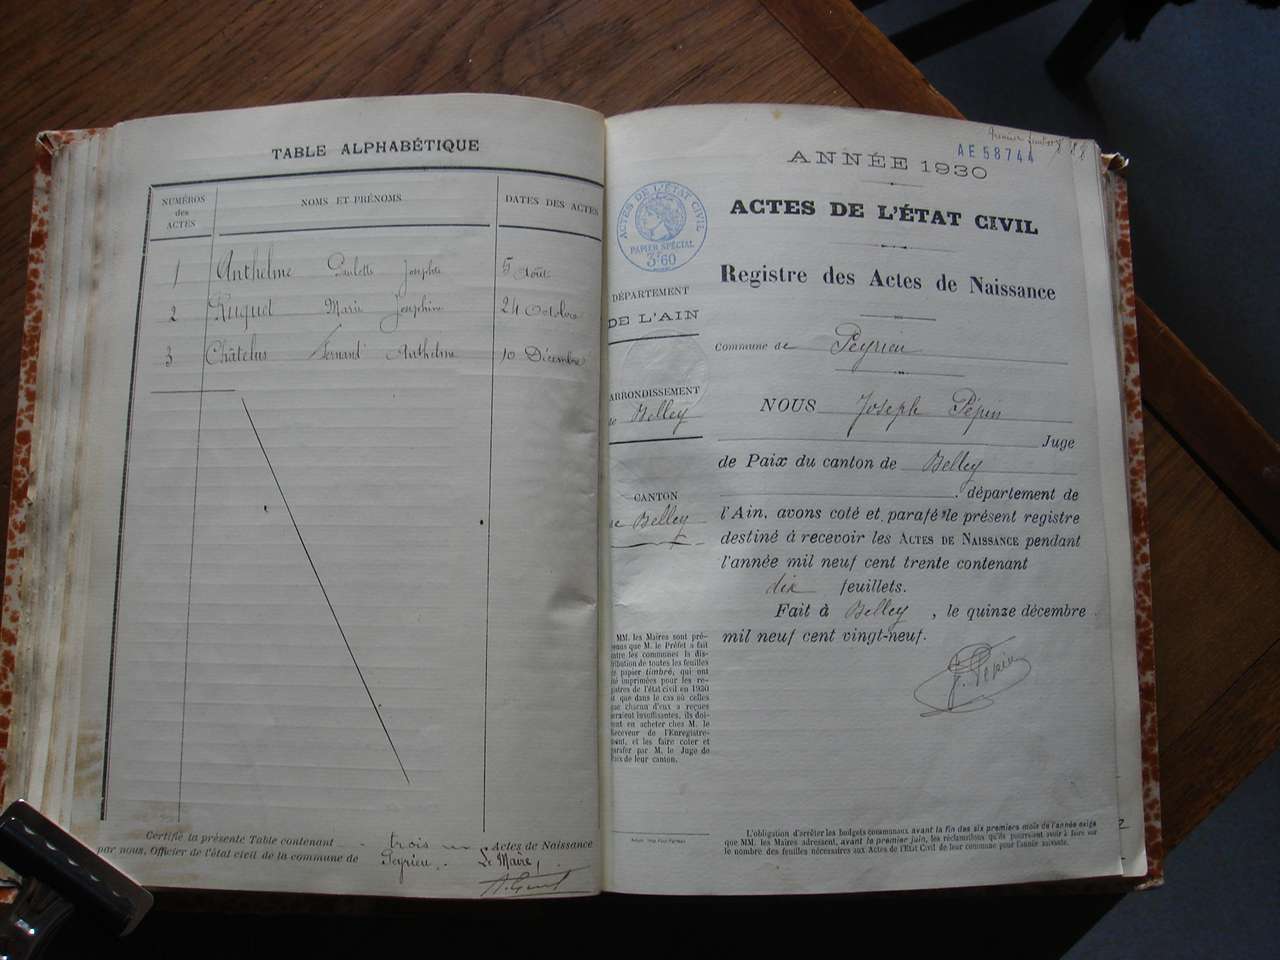 TABLE ALPHABÉTIQUE
NUMÉROS des ACTES
NOMS ET PRÉNOMS
DATES DES ACTES
1 Anthelme Paulette Josephte 5 Août
2 Ruquet Marie Josephine 24 Octobre
3 Châtelus Fernand Anthelme 10 Décembre
Certifié la présente Table contenant trois Actes de Naissance
par nous, Officier de l'état civil de la commune de Peyrieu. Le Maire,
Premier
AE 58744
ANNÉE 1930
ACTES DE L'ÉTAT CIVIL
PAPIER SPÉCIAL
3F60
ACTES DE L'ÉTAT CIVIL
Registre des Actes de Naissance
DÉPARTEMENT
DE L'AIN
Commune de Peyrieu
ARRONDISSEMENT
de Belley
CANTON
de Belley
NOUS Joseph Pépin
Juge
de Paix du canton de Belley
, département de
l'Ain, avons coté et parafé le présent registre
destiné à recevoir les ACTES DE NAISSANCE pendant
l'année mil neuf cent trente contenant
dix feuillets.
Fait à Belley, le quinze décembre
mil neuf cent vingt-neuf.
J. Pépin
MM. les Maires sont pré-
venus que M. le Préfet a fait
entre les communes la dis-
tribution de toutes les feuilles
de papier timbré, qui ont
été imprimées pour les re-
gistres de l'état civil en 1930
et que dans le cas où celles
que chacun d'eux a reçues
seraient insuffisantes, ils doi-
vent en acheter chez M. le
Receveur de l'Enregistre-
ment, et les faire coter et
parafer par M. le Juge de
Paix de leur canton.
L'obligation d'arrêter les budgets communaux avant la fin des six premiers mois de l'année exige
que MM. les Maires adressent, avant le premier juin, les réclamations qu'ils pourraient avoir à faire sur
le nombre des feuilles nécessaires aux Actes de l'État Civil de leur commune pour l'année suivante.